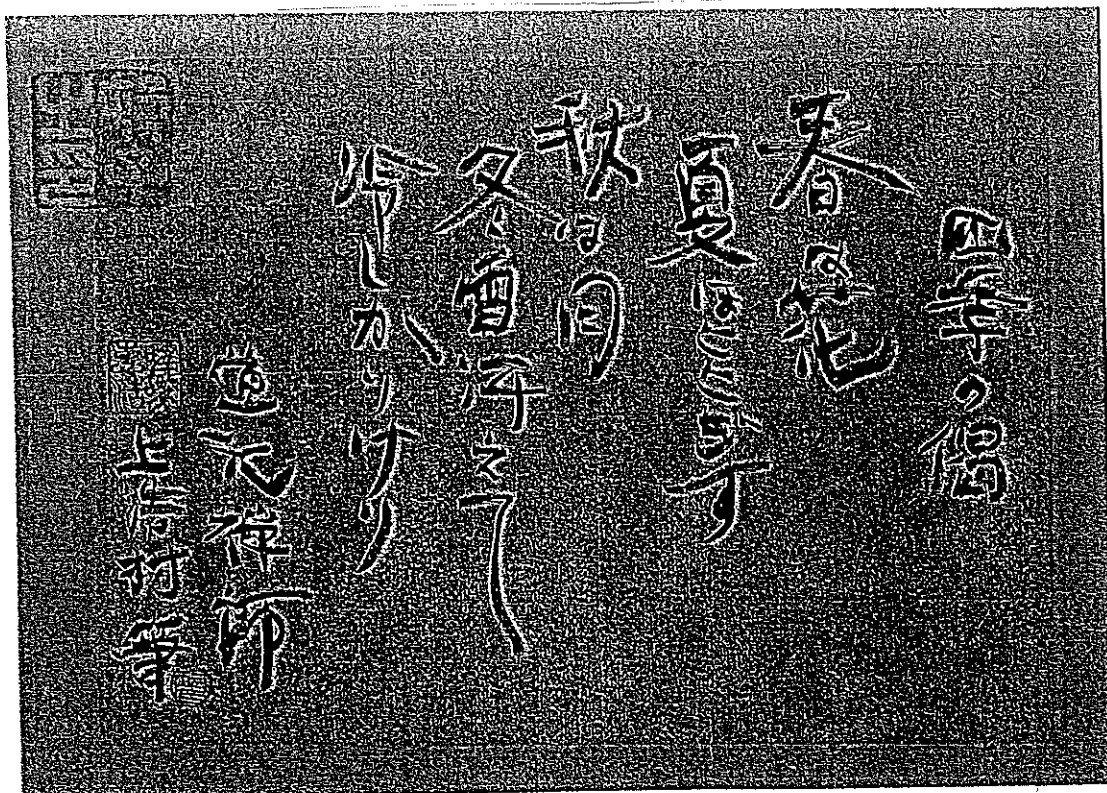 四季の偈
春は花
夏ほととぎす
秋は月
冬雪冴えて
冷しかりけり
道元禅師
上 村筆